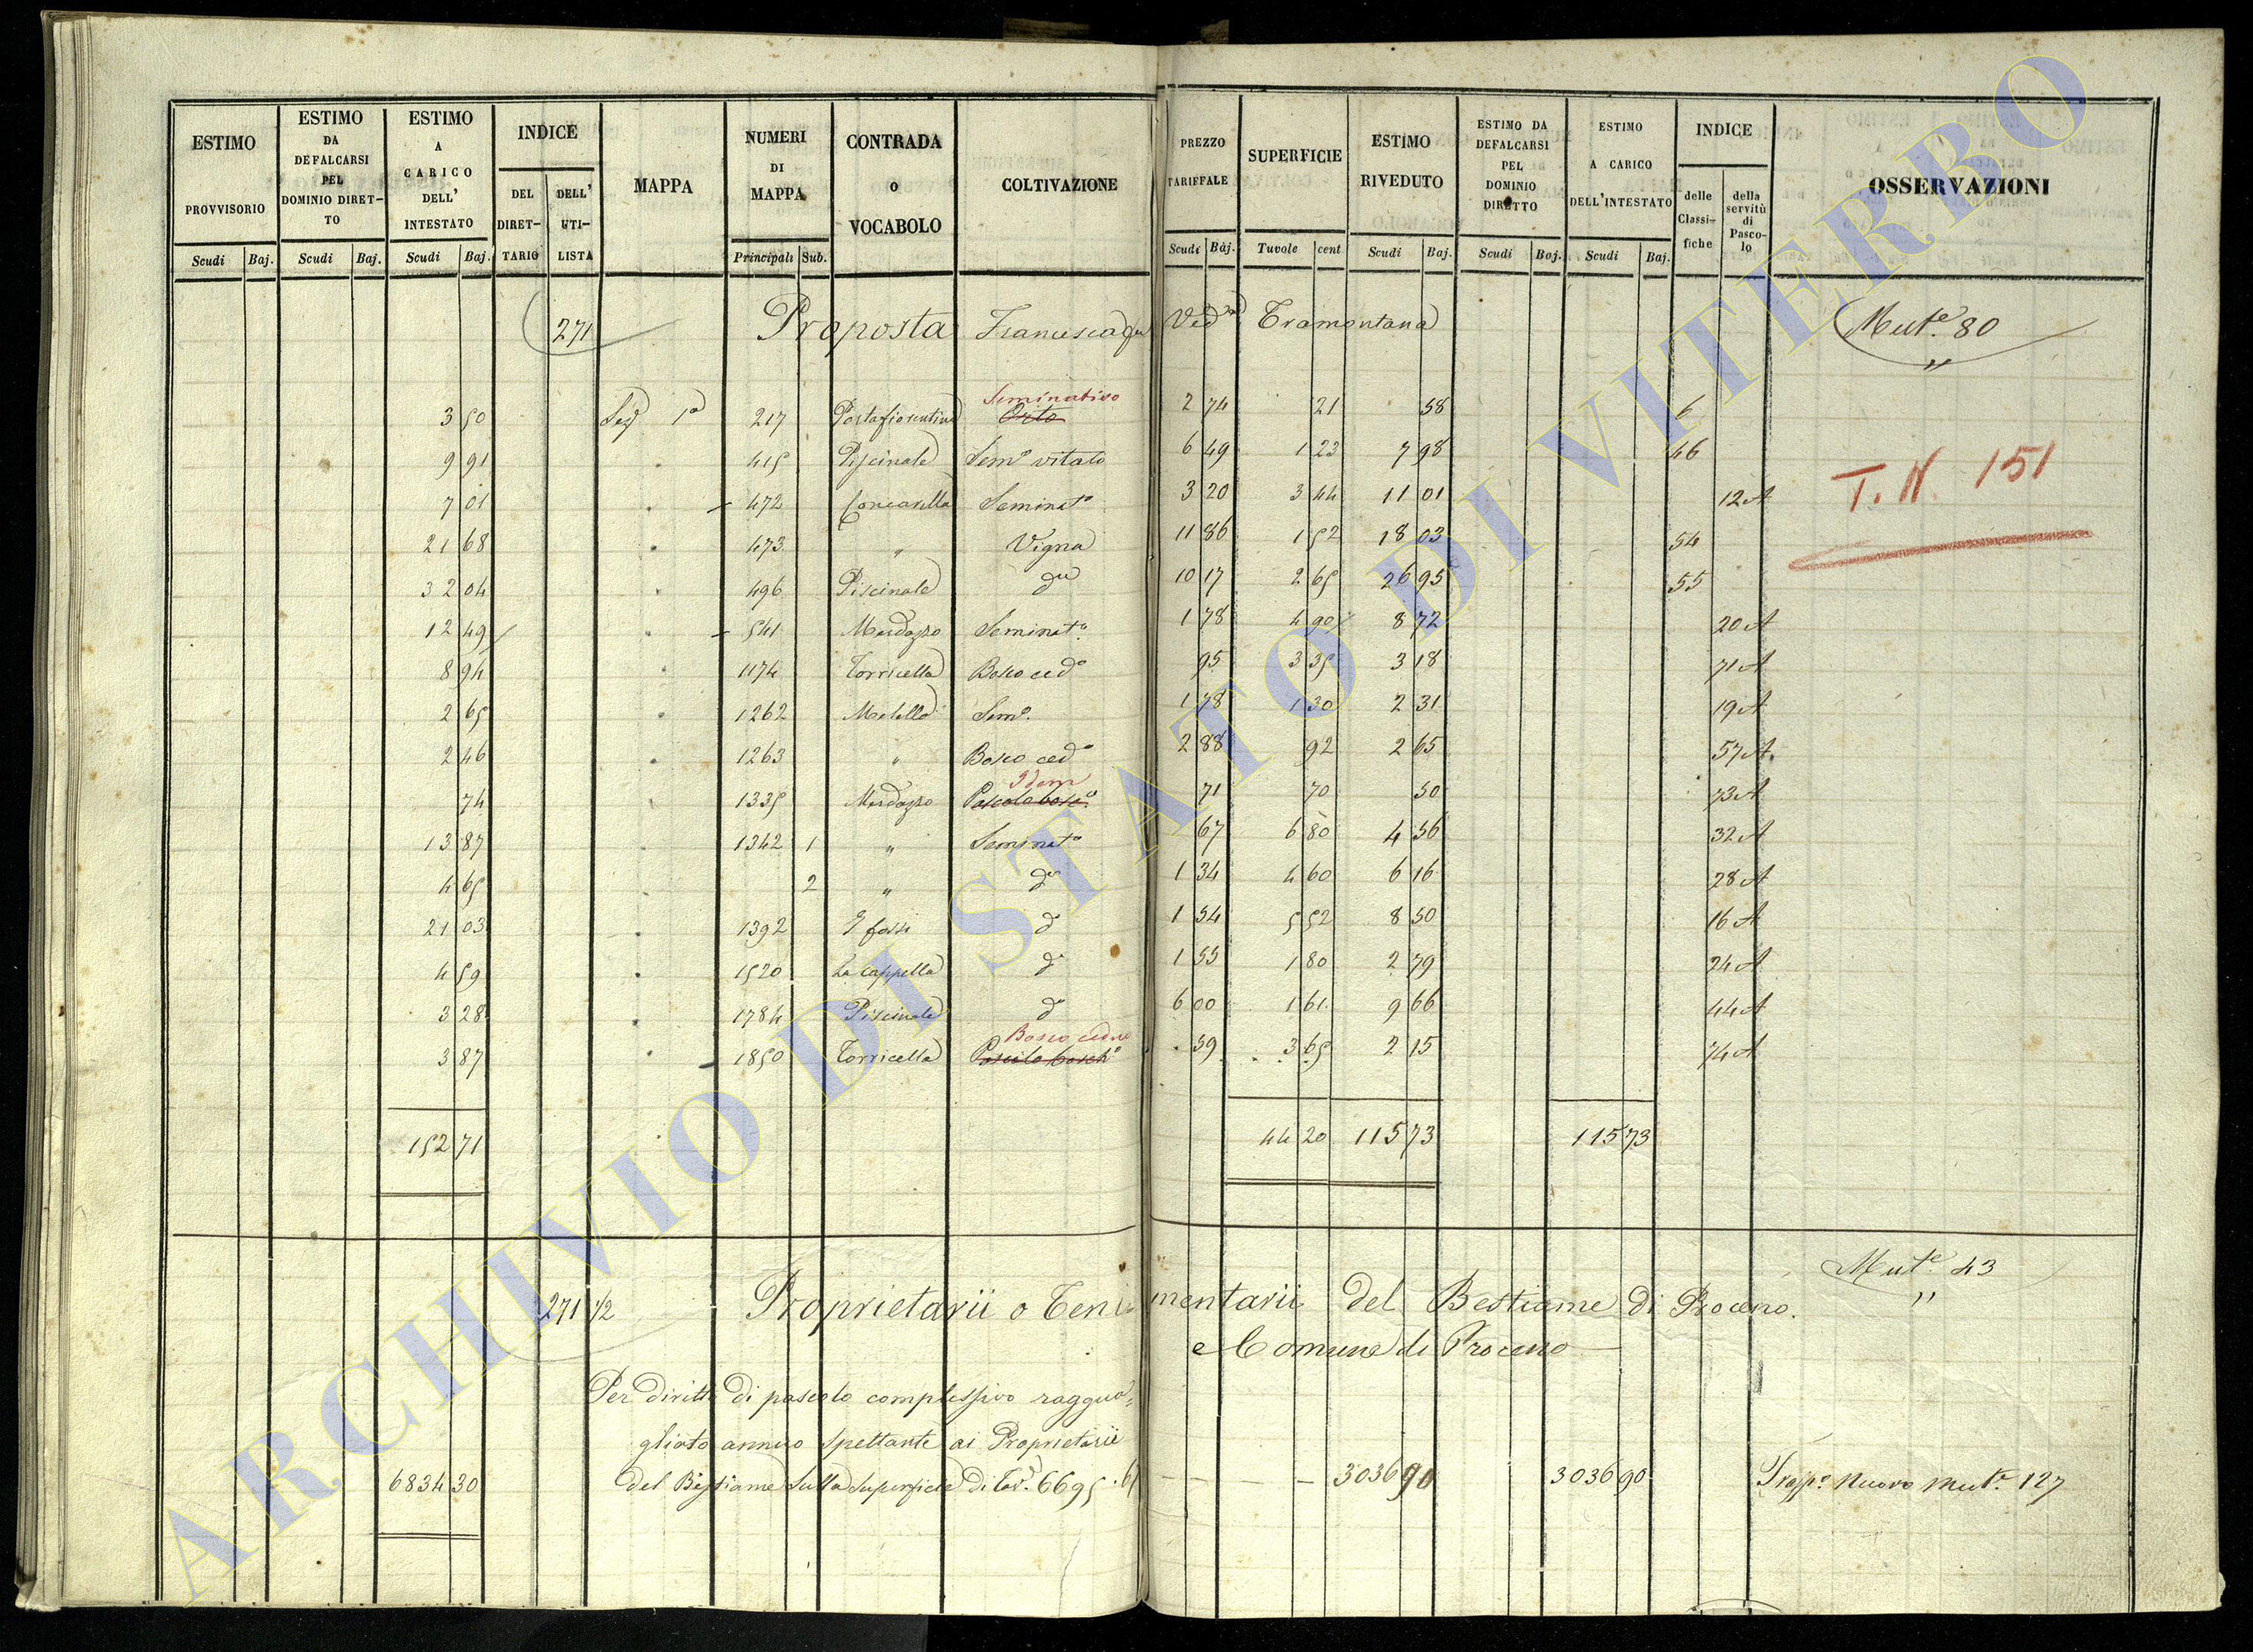 ESTIMO PROVVISORIO
ESTIMO DA DEFALCARSI PEL DOMINIO DIRETTO
ESTIMO A CARICO DELL' INTESTATO
INDICE
DEL DIRETTARIO
DELL' UTILISTA
MAPPA
NUMERI DI MAPPA
CONTRADA o VOCABOLO
COLTIVAZIONE
PREZZO TARIFFALE
SUPERFICIE
ESTIMO RIVEDUTO
ESTIMO DA DEFALCARSI PEL DOMINIO DIRETTO
ESTIMO A CARICO DELL'INTESTATO
INDICE
delle Classifiche
della servitù di Pascolo
OSSERVAZIONI
Scudi Baj. Scudi Baj. Scudi Baj. Principali Sub. Scudi Baj. Tavole cent Scudi Baj. Scudi Baj. Scudi Baj.
271 Proposta Francesca Ved Tramontana Mut.e 80
Seminativo
3 50 Sez 1a 217 Portafiorentina Orto 2 74 21 58 6
9 91 415 Piscinale Sem.o vitato 6 49 1 23 7 98 46
T. N. 151
7 01 472 Concarella Seminat.o 3 20 3 44 11 01 12 A
21 68 473 " Vigna 11 86 1 52 18 03 54
32 04 496 Piscinale d.a 10 17 2 65 26 95 55
12 49 541 Mardazzo Seminat.o 1 78 4 90 8 72 20 A
8 94 1174 Torricella Bosco ced.o 95 3 35 3 18 71 A
2 65 1262 Sem.o 1 78 1 30 2 31 19 A
2 46 1263 " Bosco ced.o 2 88 92 2 65 57 A
Idem
74 1335 Mardazzo Pascolo bosc.o 71 70 50 73 A
13 87 1342 1 " Seminat.o 67 6 80 4 56 32 A
4 65 2 " d.o 1 34 4 60 6 16 28 A
21 03 1392 I fossi d.o 1 54 5 52 8 50 16 A
4 59 1520 La Cappella d.o 1 55 1 80 2 79 24 A
3 28 1784 Piscinale d.o 6 00 1 61 9 66 44 A
Bosco ceduo
3 87 1850 Torricella Pascolo bosch.o 59 3 65 2 15 74 A
152 71 44 20 115 73 115 73
Mut.e 43
271 1/2 Proprietarii o Tenimentarii del Bestiame di Proceno.
e Comune di Proceno
Per diritti di pascolo complessivo raggua=
gliato annuo spettante ai Proprietarii
6834 30 del Bestiame sulla superficie di Tav. 6695.61 3036 90 3036 90 Trasp.o nuovo mut.e 127
ARCHIVIO DI STATO DI VITERBO